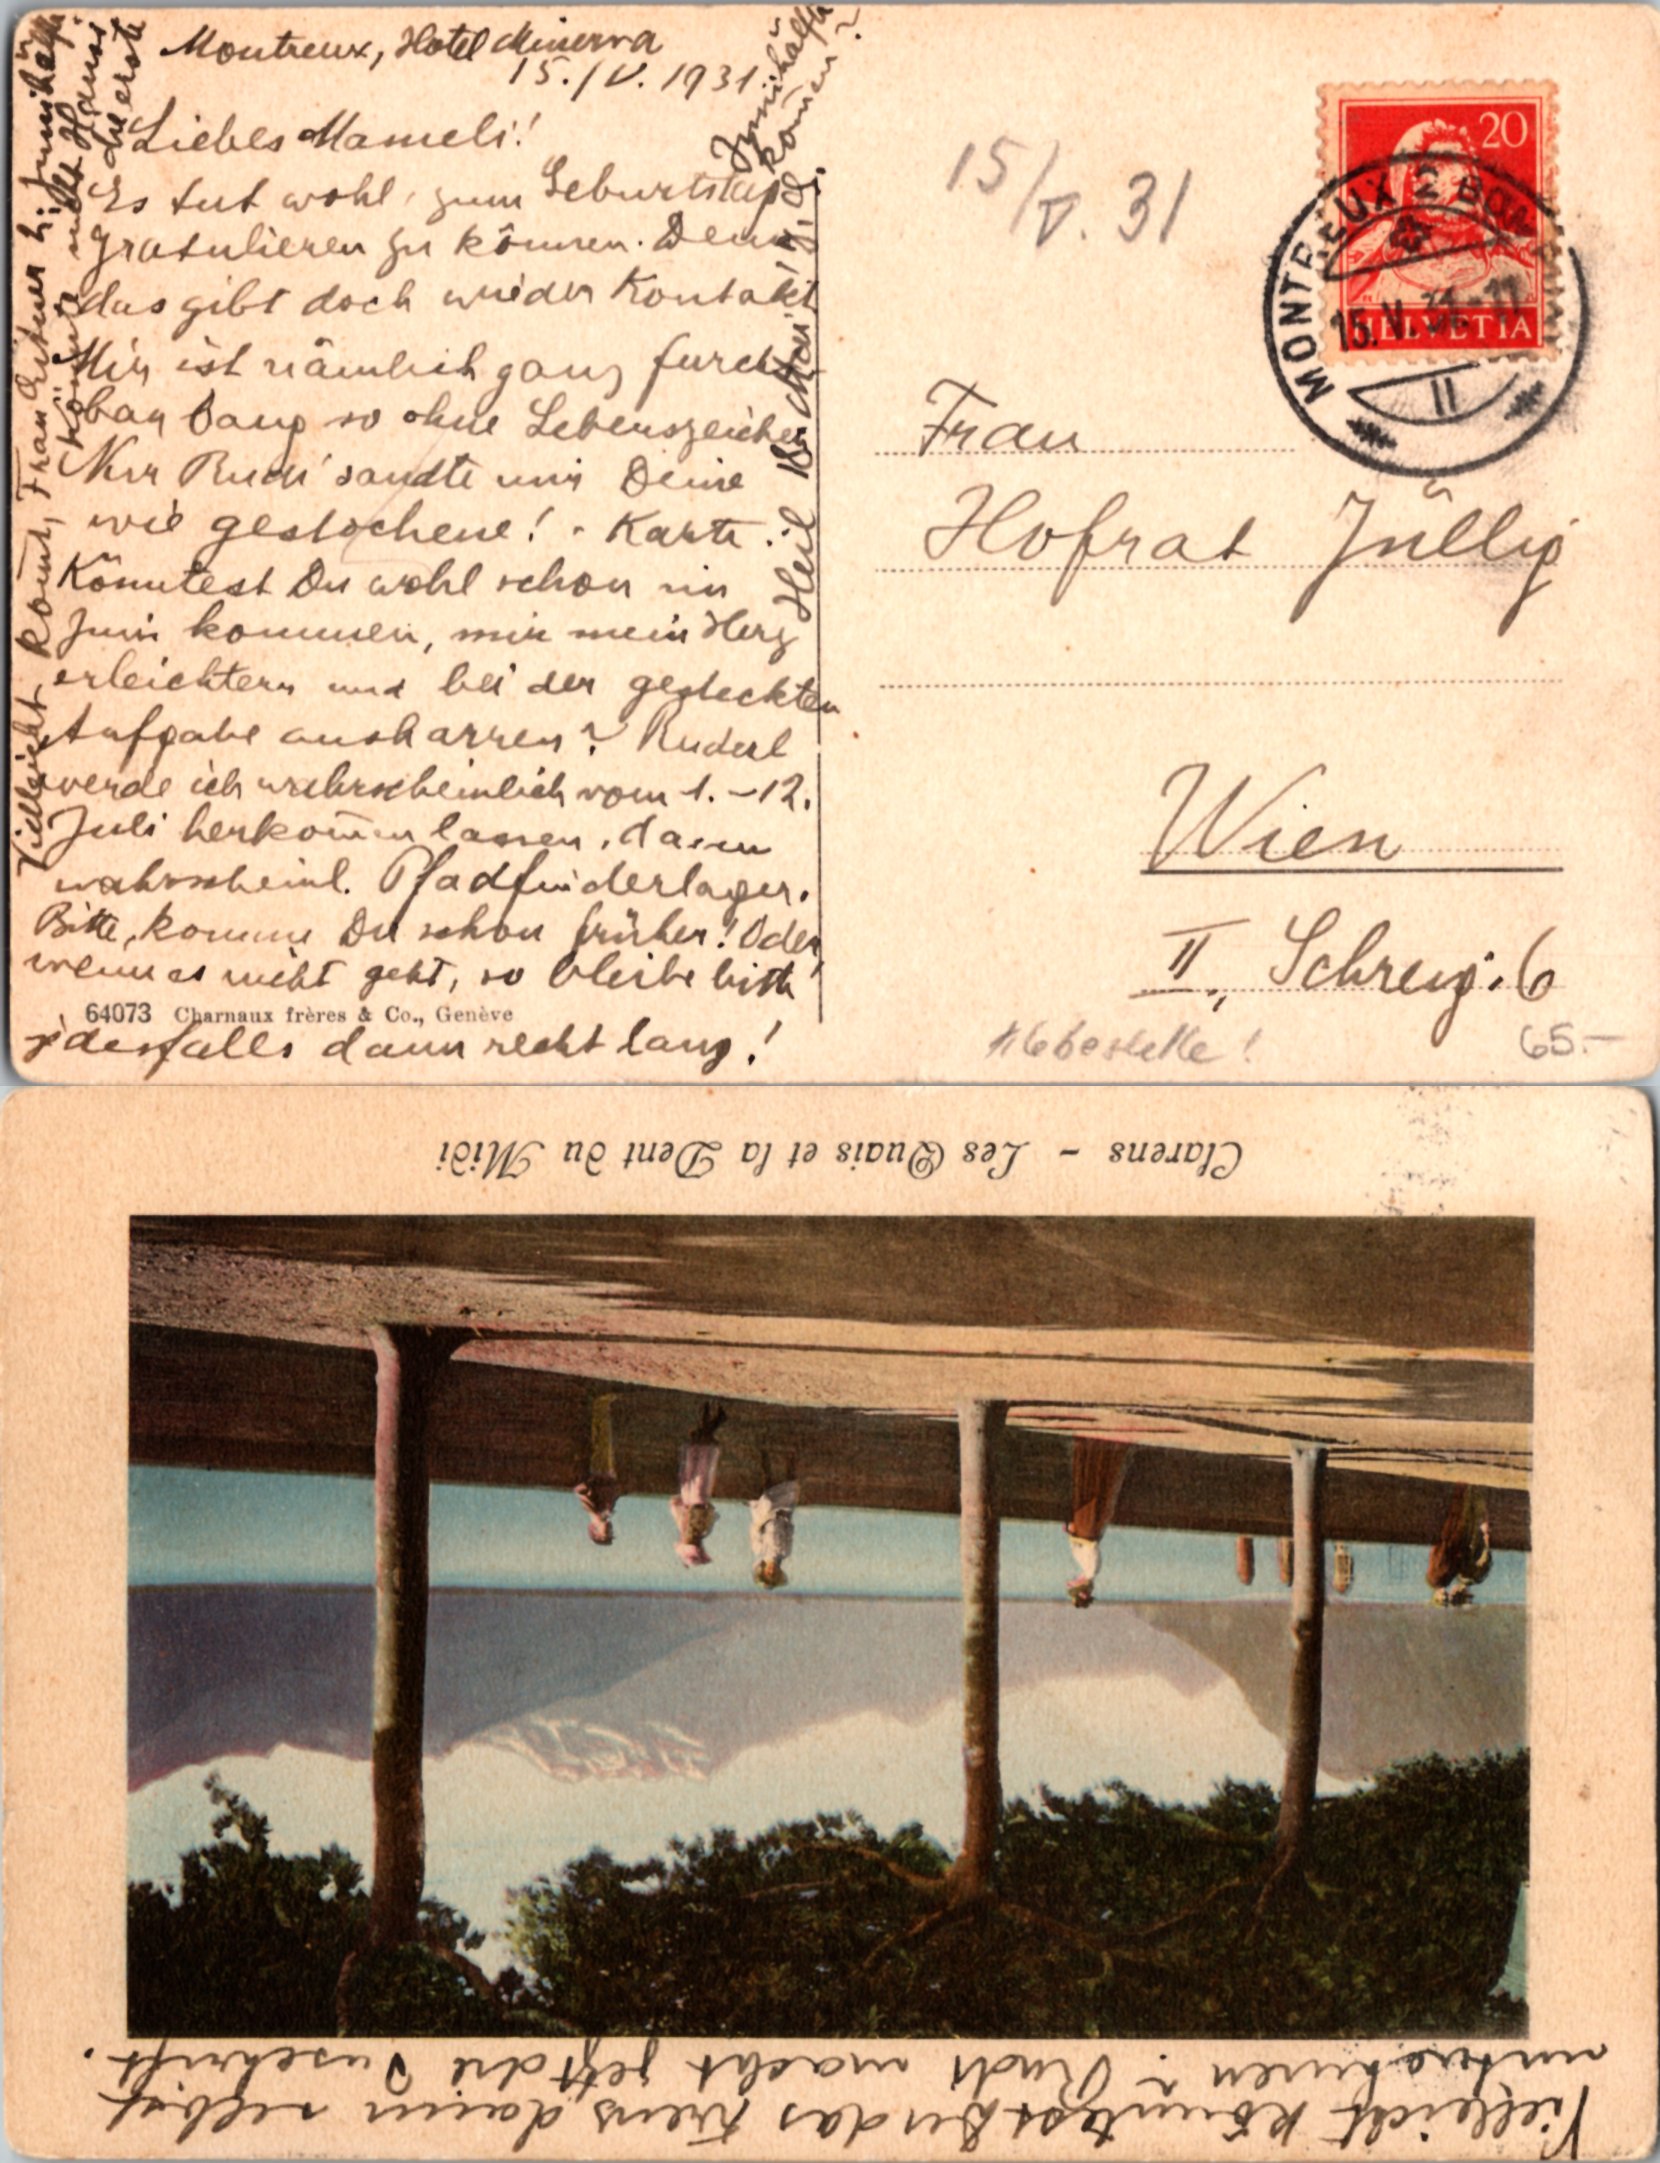 Montreux, Hotel Minerva
15./V. 1931
Liebes Mameli!
Es tut wohl, zum Geburtstag
gratulieren zu können. Denn
das gibt doch wieder Kontakt
Mir ist nämlich ganz furcht
bar bang so ohne Lebenszeichen
Nur Rudi sandte mir Deine
wie gestochene! - Karte.
Könntest Du wohl schon im
Juni kommen, mir mein Herz
erleichtern und bei der gesteckten
Aufgabe ausharren? Ruderl
werde ich wahrscheinlich vom 1. - 12.
Juli herkom̄en lassen, dann
wahrscheinl. Pfadfinderlager.
Bitte, komme Du schon früher! Oder,
wenn es nicht geht, so bleibe bitte
jedenfalls dann recht lang!
64073 Charnaux frères & Co., Genève
Vielleicht kom̄t Frau 2. Junihälfte
könnte nicht Hansi
die erste
Junihälfte
kom̄en?
Heil
15/V. 31
20
HELVETIA
MONTREUX 2
15.V.31.-17
II
Frau
Hofrat Jüllig
Wien
II, Schreyg. 6
65.-
Clarens - Les Quais et la Dent du Midi
Vielleicht könntest Du das dann selbst
Rudi macht jetzt die Inschrift.